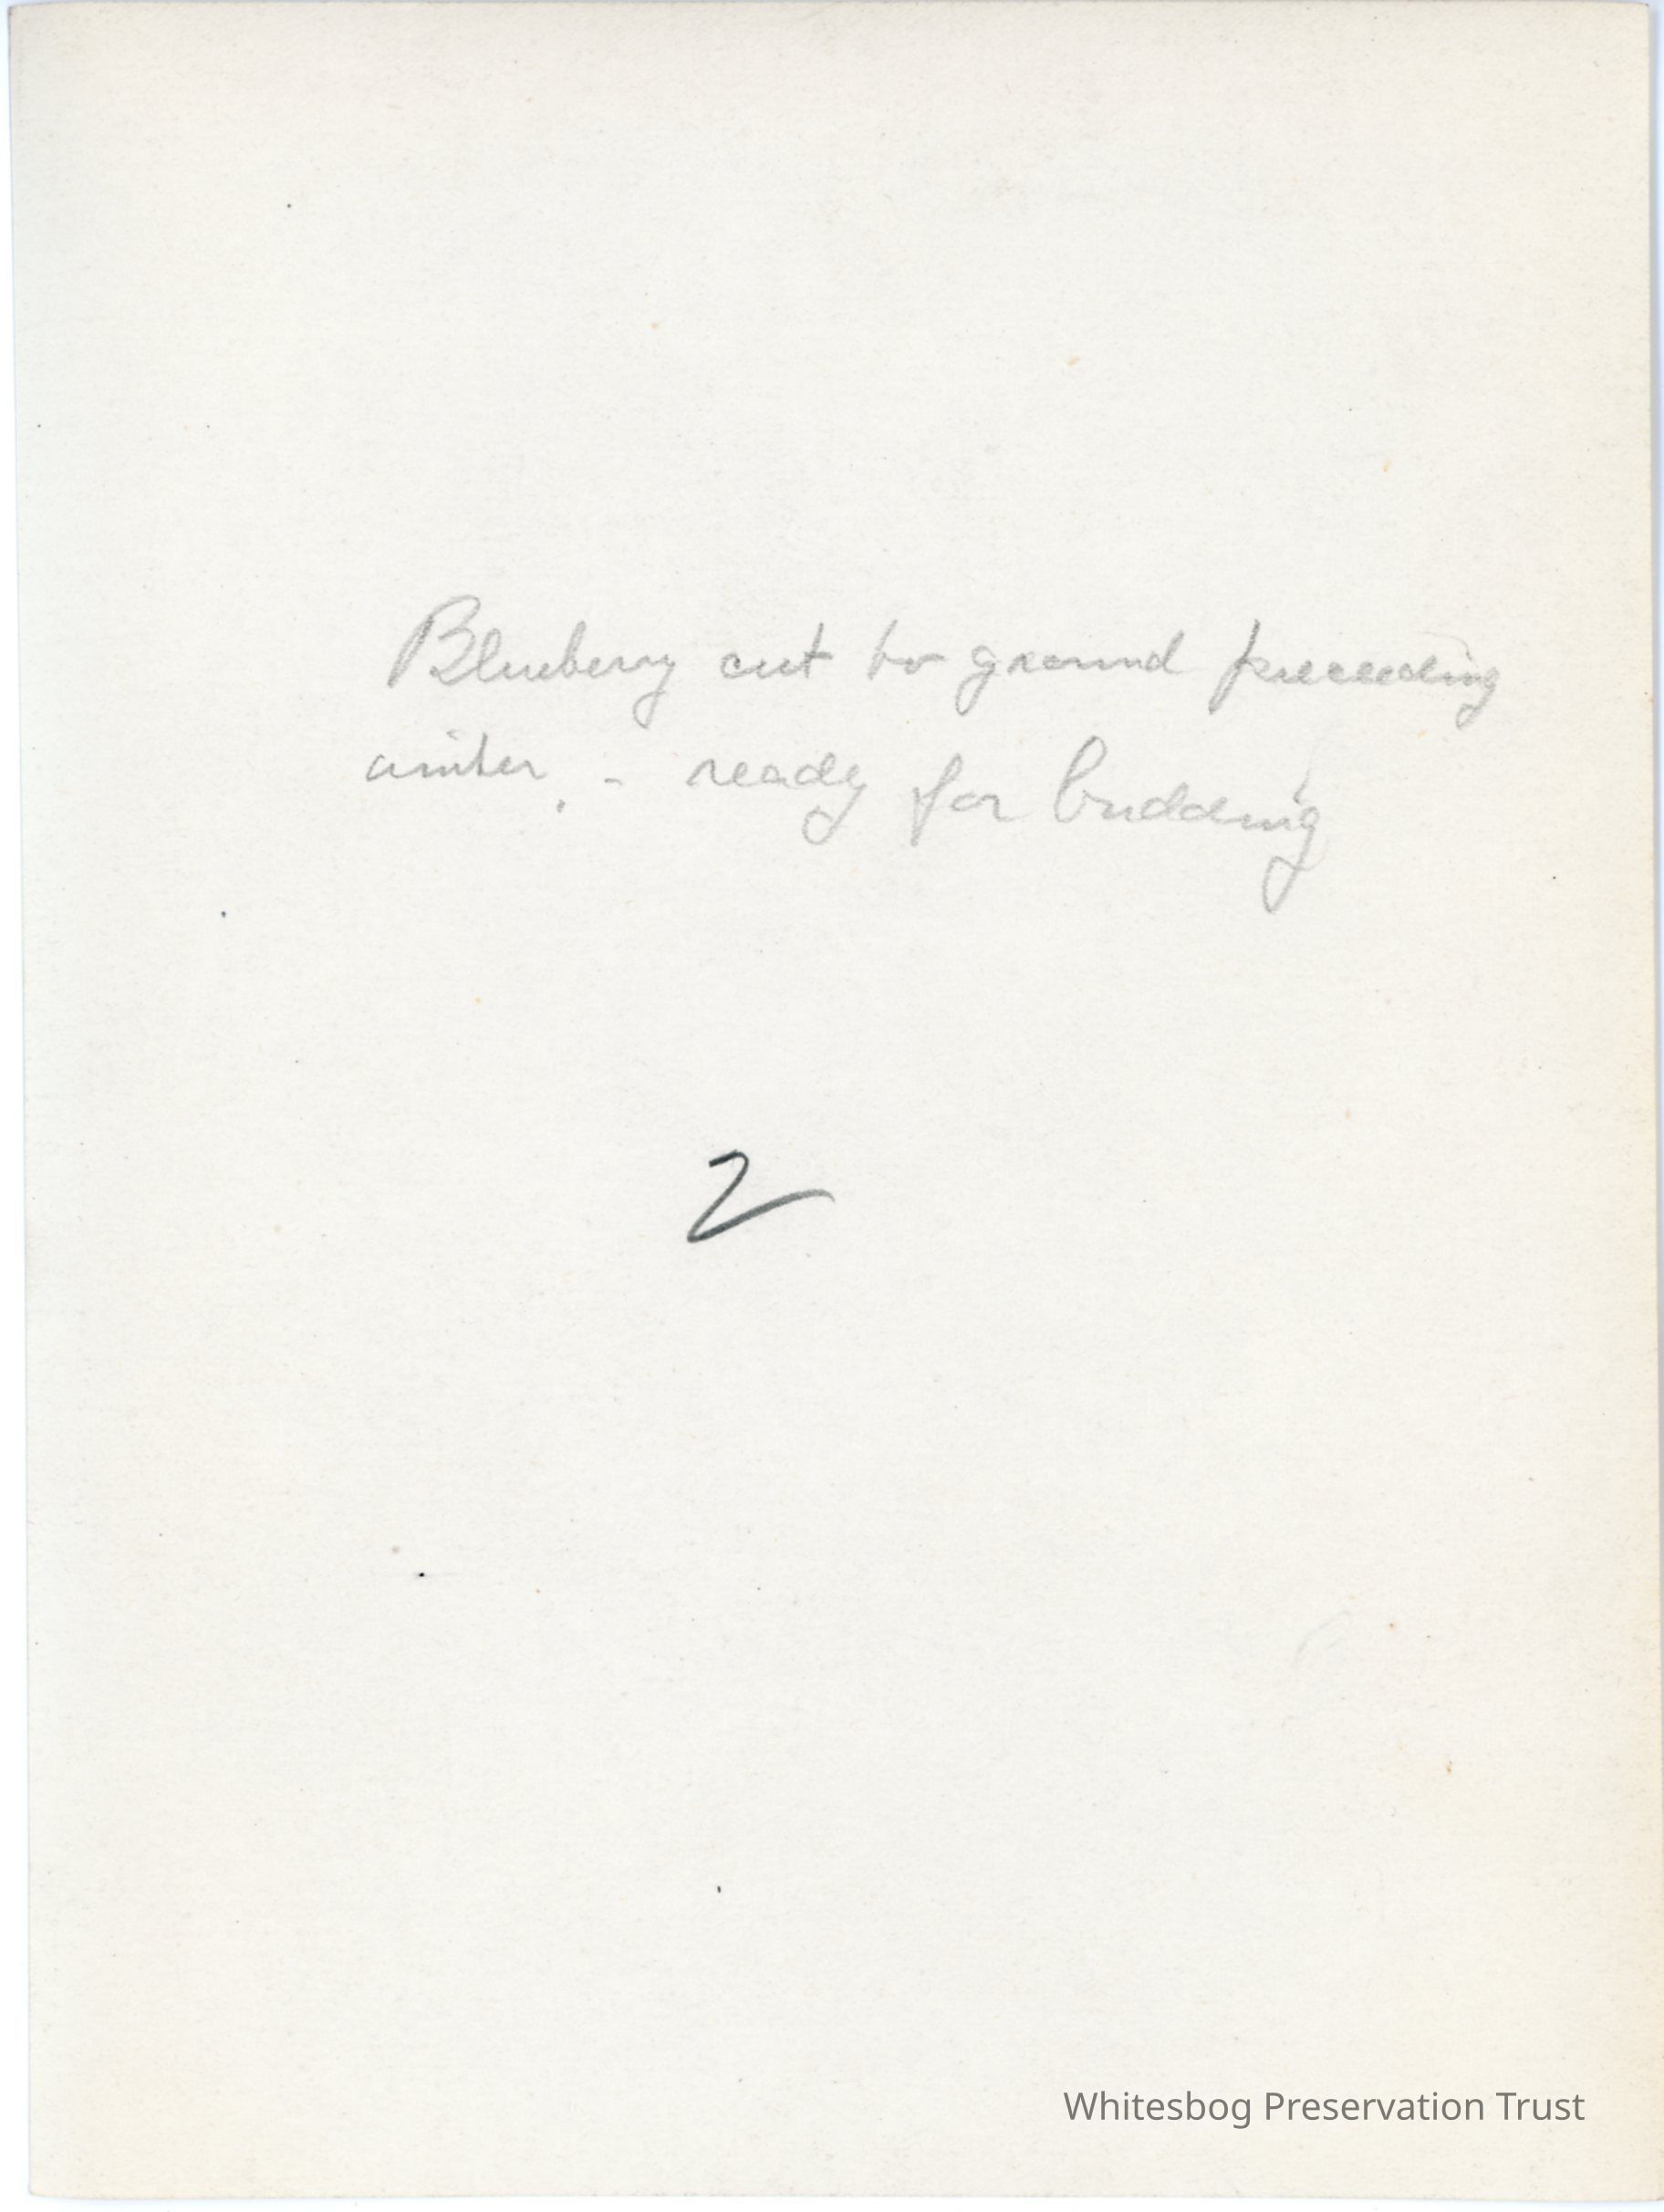 Blueberry cut to ground preceeding
winter. - ready for budding
2
Whitesbog Preservation Trust